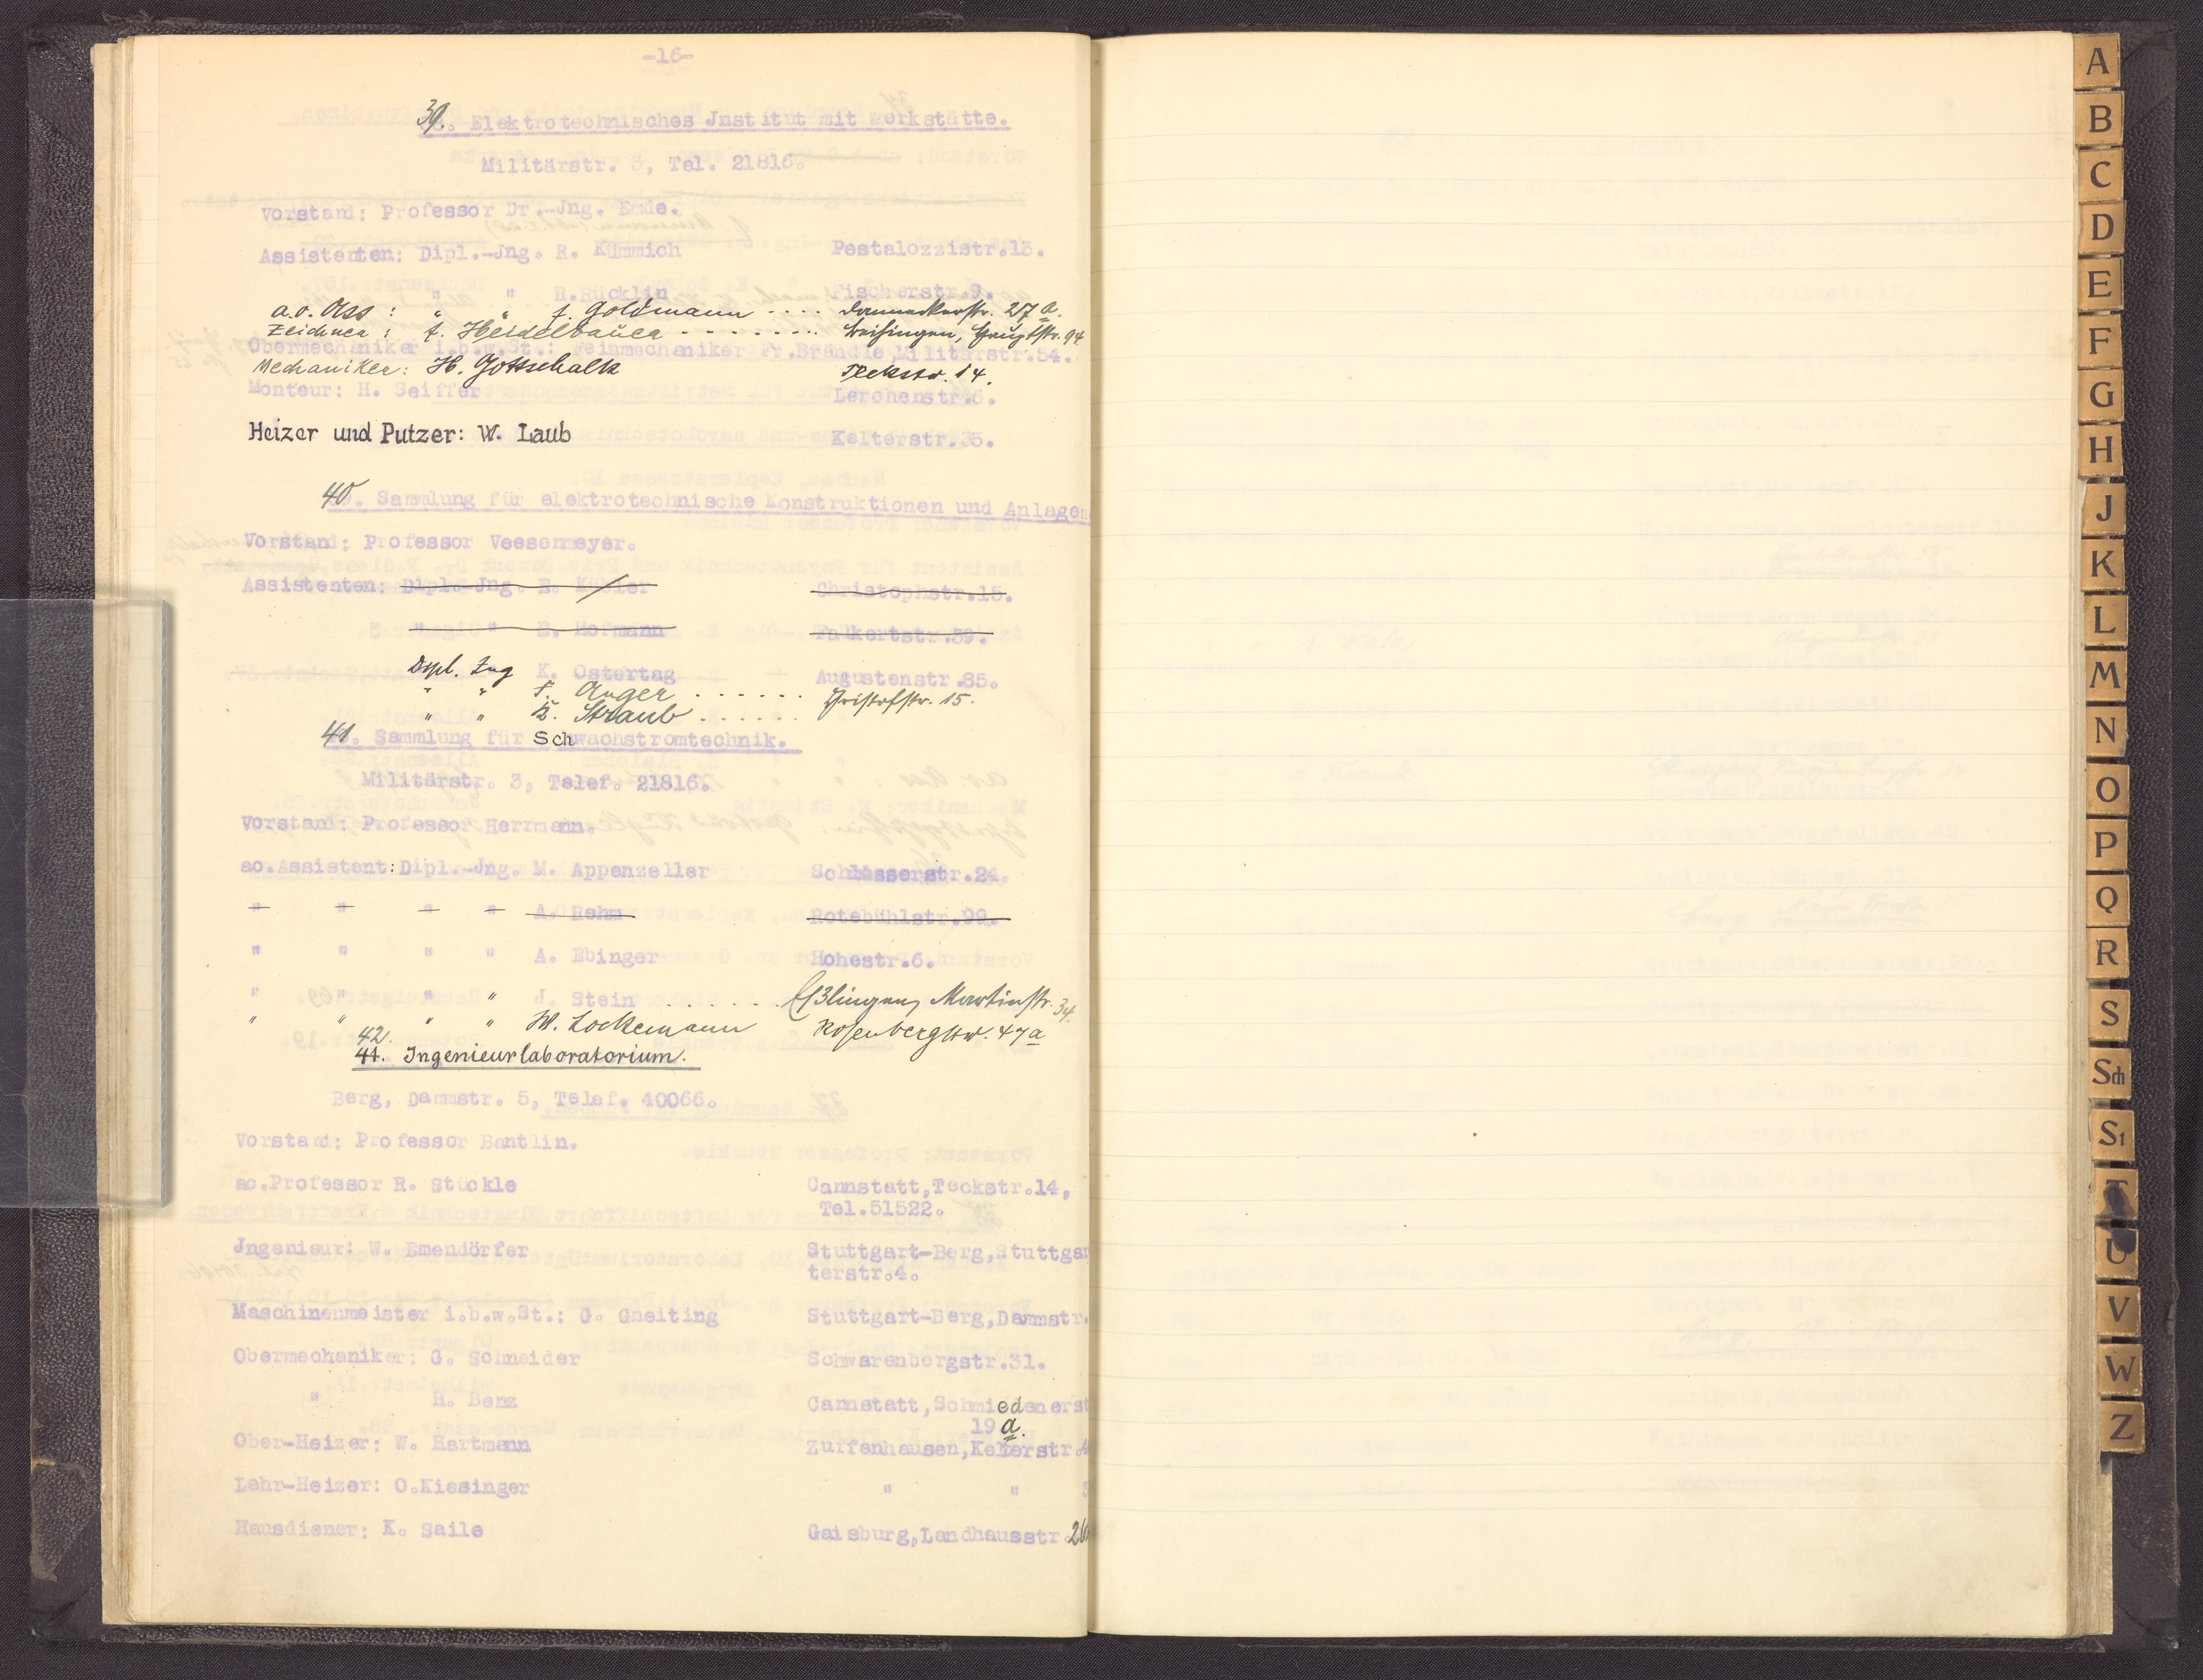 -16-
39. Elektrotechnisches Jnstitut mit Werkstätte.
Militärstr. 3, Tel. 21816.
Vorstand: Professor Dr.-Jng. Emde.
Assistenten: Dipl.-Jng. R. Kümmich Pestalozzistr.13.
" " H.Rücklin Fischerstr.9.
a.o. Ass : " " f. Goldmann .... Danneckerstr. 27 a.
Zeichner : f. Heidelbauer - - - - - - - - Hauptstr. 94
Obermechaniker i.b.w.St.: Feinmechaniker Fr.Brändle,Militärstr.54.
Mechaniker: H. Gottschalk Teckstr. 14.
Monteur: H. Seiffer Lerchenstr.6.
Heizer und Putzer: W. Laub Kelterstr.35.
40. Sammlung für elektrotechnische Konstruktionen und Anlagen
Vorstand: Professor Veesenmeyer.
Assistenten: Dipl.-Jng. E. Kübler Christophstr.15.
" " E. Hofmann Falkertstr.39.
Dipl. Ing K. Ostertag Augustenstr.85.
" " F. Auger ...... Christofstr. 15.
" " K. Straub ......
41. Sammlung für Schwachstromtechnik.
Militärstr. 3, Telef. 21816.
Vorstand: Professor Herrmann.
ao.Assistent: Dipl.-Jng. M. Appenzeller Schlosserstr.24.
" " " " A. Rehm Rotebühlstr.99.
" " " " A. Ebinger Hohestr.6.
" " " " J. Stein ....... Eßlingen, Martinstr. 34.
" " " " W. Lockemann Rosenbergstr. 47a
42.
41. Ingenieurlaboratorium.
Berg, Dammstr. 5, Telef. 40066.
Vorstand: Professor Bantlin.
ao.Professor R. Stückle Cannstatt,Teckstr.14,
Tel.51522.
Jngenieur: W. Emendörfer Stuttgart-Berg,Stuttgar
terstr.4.
Maschinenmeister i.b.w.St.: G. Gneiting Stuttgart-Berg,Dammstr.
Obermechaniker: G. Schneider Schwarenbergstr.31.
" H. Benz Cannstatt,Schmiedenerst
19 a.
Ober-Heizer: W. Hartmann Zuffenhausen,Kelterstr.
Lehr-Heizer: O.Kissinger " " 3
Hausdiener: K. Saile Gaisburg,Landhausstr.26
A
B
C
D
E
F
G
H
J
K
L
M
N
O
P
Q
R
S
Sch
St
T
U
V
W
Z